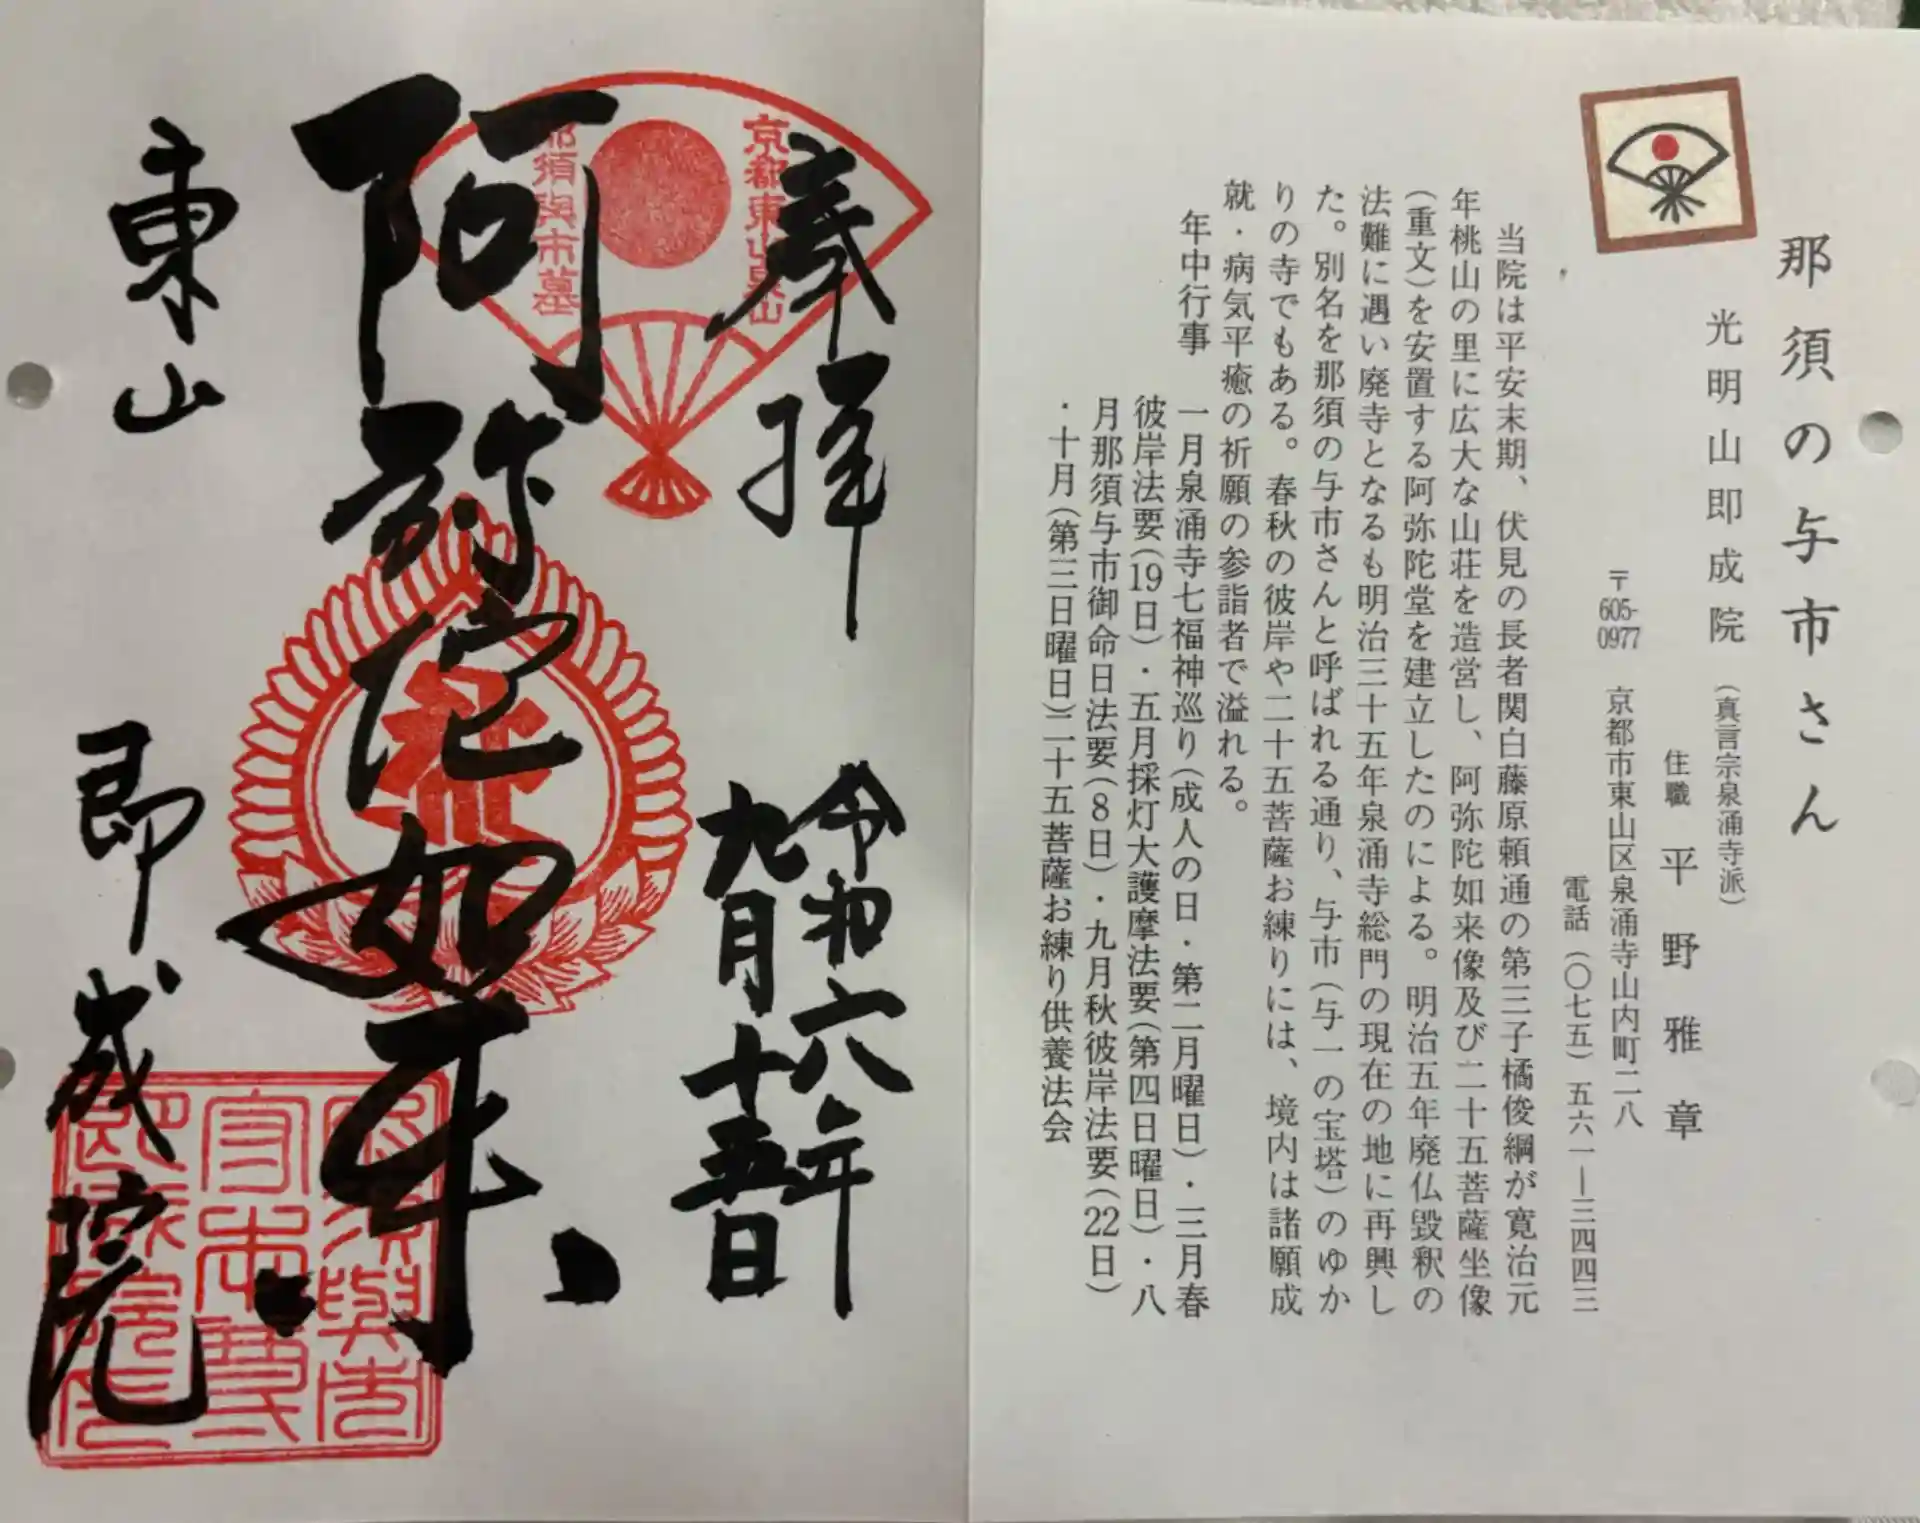 那須の与市さん
光明山即成院(真言宗泉涌寺派)
住職 平野雅章
〒605-0977 京都市東山区泉涌寺山内町二八
電話(〇七五)五六一ー三四四三
当院は平安末期、伏見の長者関白藤原頼通の第三子橘俊綱が寛治元
年桃山の里に広大な山荘を造営し、阿弥陀如来像及び二十五菩薩坐像
(重文)を安置する阿弥陀堂を建立したのによる。明治五年廃仏毀釈の
法難に遇い廃寺となるも明治三十五年泉涌寺総門の現在の地に再興し
た。別名を那須の与市さんと呼ばれる通り、与市(与一の宝塔)のゆか
りの寺でもある。春秋の彼岸や二十五菩薩お練りには、境内は諸願成
就・病気平癒の祈願の参詣者で溢れる。
年中行事 一月泉涌寺七福神巡り(成人の日・第二月曜日)・三月春
彼岸法要(19日)・五月採灯大護摩法要(第四日曜日)・八
月那須与市御命日法要(8日)・九月秋彼岸法要(22日)
・十月(第三日曜日)二十五菩薩お練り供養法会
奉拝
令和六年
九月十五日
京都東山泉山
那須與市墓
阿弥陀如来
東山
即成院